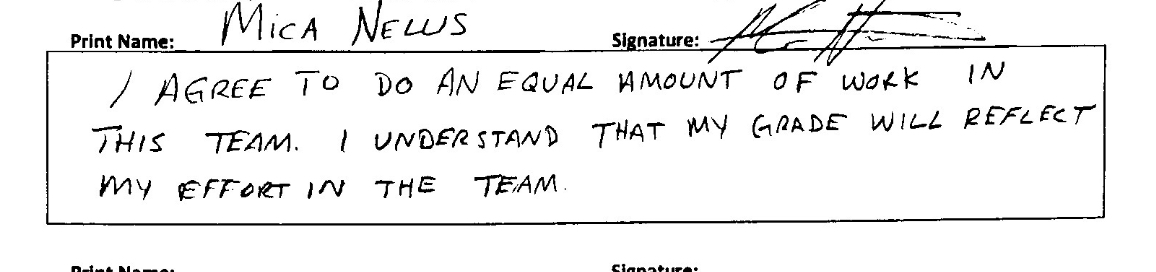 Print Name: MICA NEWS Signature:
I AGREE TO DO AN EQUAL AMOUNT OF WORK IN
THIS TEAM. I UNDERSTAND THAT MY GRADE WILL REFLECT
MY EFFORT IN THE TEAM.
Print Name: Signature: